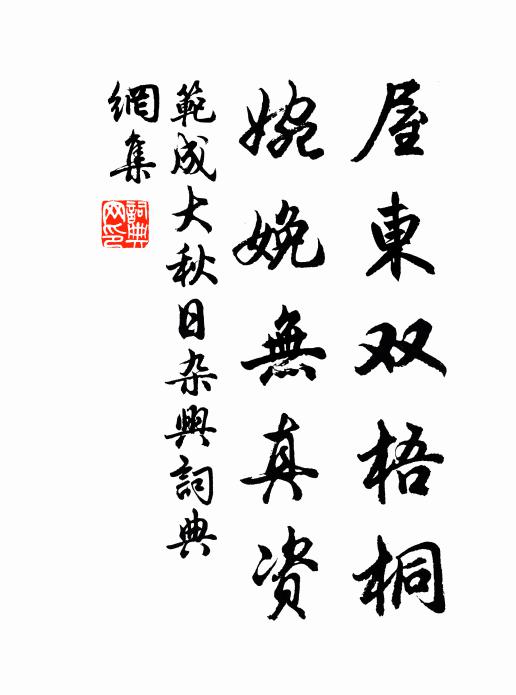 屋東双梧桐
婉娩無真资
範成大秋日杂興詞典
網集
詞典網印